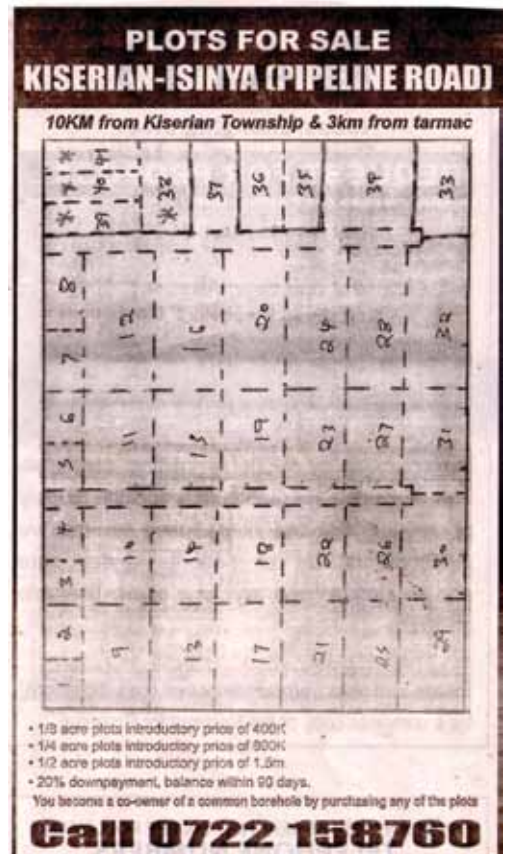 PLOTS FOR SALE
KISERIAN-ISINYA (PIPELINE ROAD)
10KM from Kiserian Township & 3km from tarmac
* 41
* 40
* 39 * 38 37 36 35 34 33
8
7 12 16 20 24 28 32
6
5 11 15 19 23 27 31
4
3 10 14 18 22 26 30
2
1 9 13 17 21 25 29
• 1/8 acre plots introductory price of 400K
• 1/4 acre plots introductory price of 800K
• 1/2 acre plots introductory price of
• 20% downpayment, balance within 90 days.
You become a co-owner of a common borehole by purchasing any of the plots
Call 0722 158760